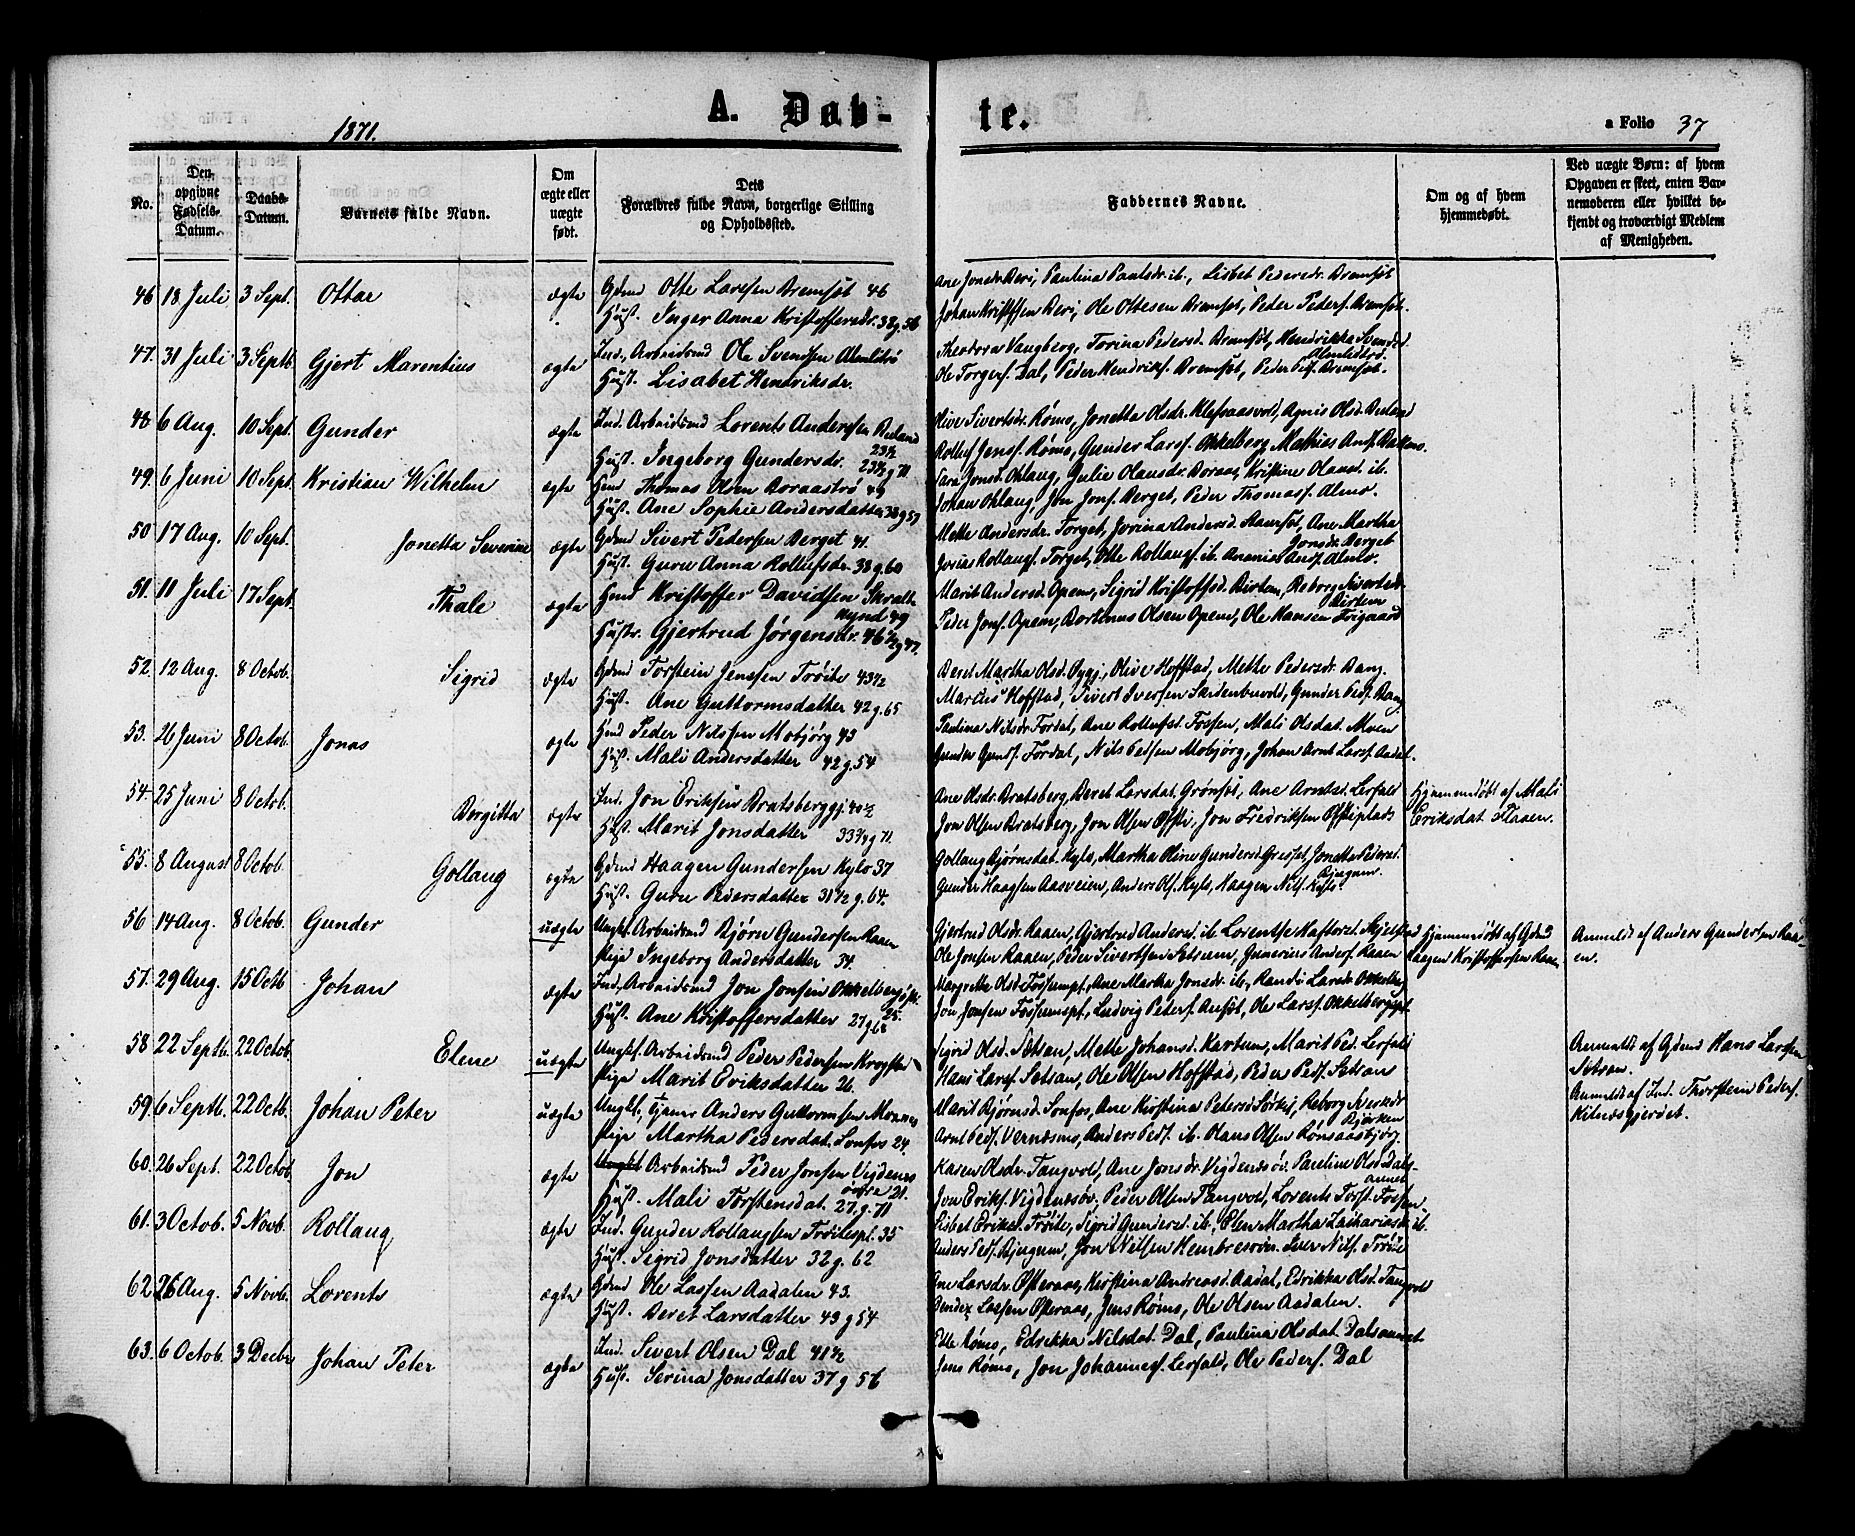 A. Døb-
te.
1871.
a Folio 37
No.
Den opgivne Fødsels-Datum.
Daabs-Datum.
Barnets fulde Navn.
Om ægte eller uægte født.
Dets Forældres fulde Navn, borgerlige Stilling og Opholdssted.
Faddernes Navne.
Om og af hvem hjemmedøbt.
Ved uægte Børn: af hvem Opgaven er skeet, enten Bar-nemoderen eller hvilket be-kjendt og troværdigt Medlem af Menigheden.
46 18 Juli 3 Sept. Ottar ægte Gdmd Otte Larssen Bremsøt 46
Hust. Inger Anna Kristoffersdr. 38 g. 56
Ane Jonsdr. Beri, Paulina Paulsdr. ib., Lisbet Pedersdr. Bremsøt
Johan Kristoffsen Beri, Ole Ottesen Bremsøt, Peder Peders. Bremsøt.
47. 31 Juli 3 Septb. Gjert Marentius ægte Ind., Arbeidsmd Ole Svendsen Almlitrø
Hust. Lisabet Hendriksdr.
Theodora Vangberg, Torina Pedersd. Bremsøt, Hendrikke Svendsd. Almlidtrø.
Ole Torgers. Dal, Peder Hendriks. Bremsøt, Peder Peds. Bremsøt.
48. 6 Aug. 10 Sept. Gunder ægte Ind. Arbeidsmd Lorents Anderssen Beeland 23½
Hust. Ingeborg Gundersdr. 23½ g. 71
Olive Sivertsdr. Rømo, Jonetta Olsdr. Klefsaasvold, Agnis Olsd. Beeland
Rolluf Jenss. Rømo, Gunder Larss. Okkelberg, Mathias Ands. Bakkmo.
49. 6 Juni 10 Sept. Kristian Wilhelm ægte Hmd Thomas Olsen Boraastrø 49
Hust. Ane Sophie Andersdatter 38 g 57
Sara Jonsd. Oklaug, Gulie Olausdr. Boraas, Kristine Olausd. ib.
Johan Oklaug, Jon Jons. Berget, Peder Thomass. Almo.
50 17 Aug. 10 Sept. Jonetta Severine ægte Gdmd Sivert Pedersen Berget 41.
Hust. Guru Anna Rollufsdr. 38 g. 60
Mette Andersdr. Torget, Jorina Andersd. Stamsøt, Ane Martha Jonsdr. Berget
Josias Rollaugs. Torget, Otte Rollaugs. ib. Ananias Ands. Almo.
51. 11 Juli 17 Sept. Thale ægte Hmd Kristoffer Davidsen Skratt-hynd 49
Hustr. Gjertrud Jørgensdr. 46½ g 47.
Marit Andersd. Opem, Sigrid Kristoffsd. Birtem, Reborg Sivertsd. Birtem
Peder Jons. Opem, Bortinus Olsen Opem, Ole Hansen Frigaard
52. 12 Aug. 8 Octob. Sigrid ægte Gdmd Torstein Jenssen Trøite 43½
Hust. Ane Guttormsdatter 42 g. 65
Beret Martha Olsd. Bygg., Olive Hofstad, Mette Pedersdr. Bang.
Marcus Hofstad, Sivert Iversen Sardenbuvold, Gunder Peds. Bang
53. 26 Juni 8 Octob. Jonas ægte Hmd Peder Nilssen Mobjørg 43
Hust. Mali Andersdatter 42 g. 54
Paulina Nilsdr. Fordal, Ane Rollufsd. Fossen, Mali Olsdat. Moen
Gunder Gunds. Fordal, Nils Pedsen Mobjørg, Johan Arnt Larss. Aadal.
54. 25 Juni 8 Octob. Borgitta ægte Ind. Jon Eriksen Bratsberggj. 40½
Hust. Marit Jonsdatter 33¾ g 71.
Ane Olsdr. Bratsberg, Beret Larsdat. Grønsøt, Ane Arntsd. Lerfald
Jon Olsen Bratsberg, Jon Olsen Øfsti, Jon Fredriksen Øfstiplads
Hjemmedøbt af Mali Eriksdat. Flaaen.
55. 8 August 8 Octob. Gollaug ægte Gdmd Haagen Gundersen Kylo 37
Hust. Guru Pedersdatter 31½ g. 64.
Gollaug Bjørnsdat. Kylo, Martha Oline Gundersd. Gresset, Jonetta Pedersd. Bjugum.
Gunder Haagsen Aasveien, Anders Ols. Kylo, Haagen Nils. Kylo
56 14 Aug. 8 Octob. Gunder uægte Ungk. Arbeidsmd Bjørn Gundersen Raaen
Pige Ingeborg Andersdatter 34.
Gjertrud Olsdr. Raaen, Gjertrud Andersd. ib. Lorentse Hastorsd. Skjelstad
Ole Jonsen Raaen, Peder Sivertsen Setsum, Gunerius Anders. Raaen
Hjemmedøbt af Gdmd Haagen Kristoffersen Raaen
Anmeldt af Anders Gundersen Raa-en.
57. 29 Aug. 15 Octb Johan ægte Ind. Arbeidsmd Jon Jonsen Okkelbergspl. 25.
Hust. Ane Kristoffersdatter 27 g 68
Margrethe Olsd. Fossumspl., Ane Martha Jonsdr. ib., Randi Larsdr. Okkelberg
Jon Jonsen Fossumspl., Ludvig Peders. Ausøt, Ole Larss. Okkelbergspl.
58 22 Septb. 22 Octob. Elene uægte Ungk. Arbeidsmd Peder Pedersen Krogstad
Pige Marit Eriksdatter 26.
Sigrid Olsd. Setsan, Mette Johansd. Kartum, Marit Ped. Lerfald
Hans Larss. Setsan, Ole Olsen Hofstad, Peder Peds. Setsan
Anmeldt af Gdmd Hans Larssen Setsan.
59. 6 Septb. 22 Octb. Johan Peter uægte Ungk., Tjener Anders Guttormsen Moxnes
Pige Martha Pedersdat. Sonfos 24.
Marit Bjørnsd. Sonfos, Ane Kirstina Petersd. Sørkil, Reborg Sverksdr. Bjerken
Arnt Peds. Vernesmo, Anders Peds. ib. Hans Olsen Ronsaasbjørg.
Anmeldt af Ind. Thorstein Peders. Kilnesgjerdet.
60. 26 Sept. 22 Octob. Jon ægte Ungk. Arbeidsmd Peder Jonsen Vigdenes øvre 21.
Hust. Mali Torstensdat. 27. g. 71
Karen Olsdr. Tangvold, Ane Jonsdr. Vigdenesøv. Pauline Olsd. Dals-aunet
Jon Eriks. Vigdenesøv. Peder Olsen Tangvold, Lorents Torst. Fossen.
61. 3 Octob. 5 Novb. Rollaug ægte Ind. Gunder Rollaugsen Trøitespl. 35
Hust. Sigrid Jonsdatter 32 g. 62
Lisbet Eriksd. Trøite, Sigrid Gundersd. ib., Elen Martha Zachariasdr. ib.
Anders Peds. Bjugum, Jon Nilsen Hembresødr. Iver Nils. Trøite
62. 26 Aug. 5 Novb. Lorents ægte Gdmd Ole Larsen Aadalen 43.
Hust. Beret Larsdatter 43 g 54
Ane Larsdr. Øfteraas, Kirstina Andreasd. Aadal, Edrikka Olsd. Tangvold
Bendex Larsen Øfteraas, Jens Rømo, Ole Olsen Aadalen.
63. 6 Octob. 3 Decbr Johan Peter ægte Ind. Sivert Olsen Dal 41½
Hust. Serina Jonsdatter 37 g 56
Edle Rømo, Edrikka Nilsdat. Dal, Paulina Olsdat. Dalsaunet
Jens Rømo, Jon Johannes. Lerfald, Ole Peders. Dal